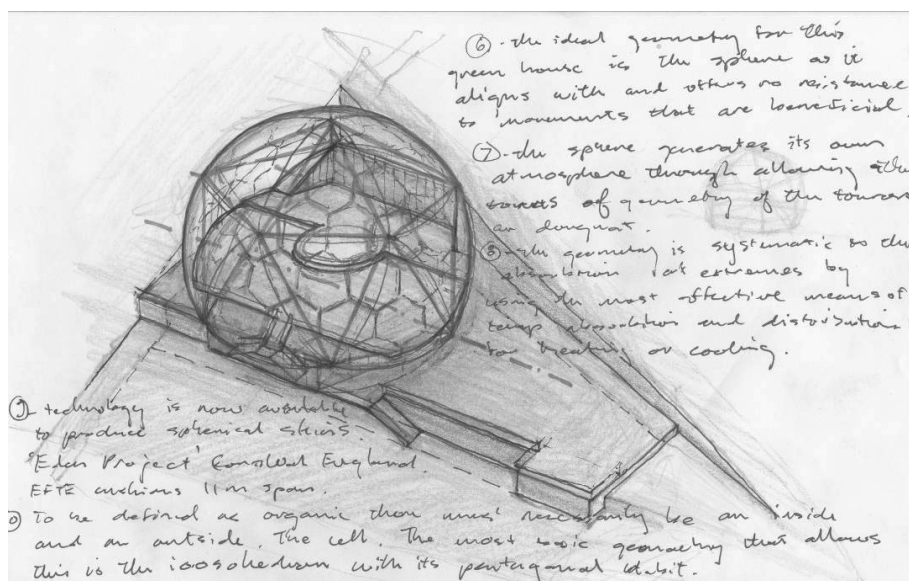 ⑥ - the ideal geometry for this
green house is the sphere as it
aligns with and offers no resistance
to movements that are beneficial.
⑦ - the sphere generates its own
atmosphere through allowing the
of geometry of the
an
⑧ - the geometry is systematic to the
absorbtion of extremes by
using the most effective means of
temp absorbtion and distribution
for heating or cooling.
⑨ - technology is now available
to produce spherical skins
'Eden Project' Cornwall England.
EFTE cushions 11m span.
To be defined as organic there must necessarily be an inside
and an outside. The cell. The most basic geometry that allows
this is the icosohedron with its pentagonal